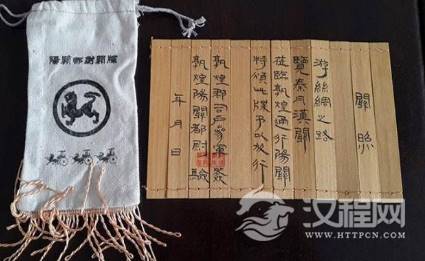 陽關都尉關牒
關照
游絲綢之路
覽秦月漢關
莅臨敦煌通行陽關
特頒此牒予以放行
敦煌郡司戶參軍簽
敦煌陽關都尉驗
年月日
汉程网
WWW.HTTPCN.COM